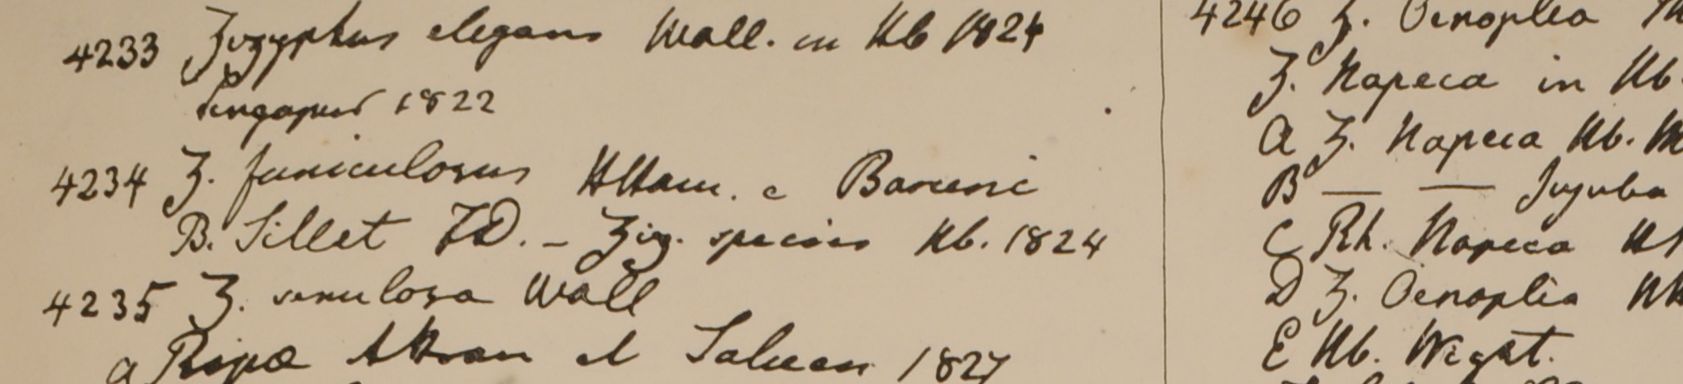 4233 Zizyphus elegans Wall. in Hb 1824
Singapur 1822
4234 Z. funiculosus HHam. e
B. Sillet FD. – Ziz. species Hb. 1824
4235 Z. venulosa Wall
a Ripa et Saluen 1827
4246 Z. Oenoplia
Z. Napeca in Hb.
A Z. Napeca Hb.
B — — Jujuba
C Rh. Napeca
D Z. Oenoplia
E Hb. Wight.